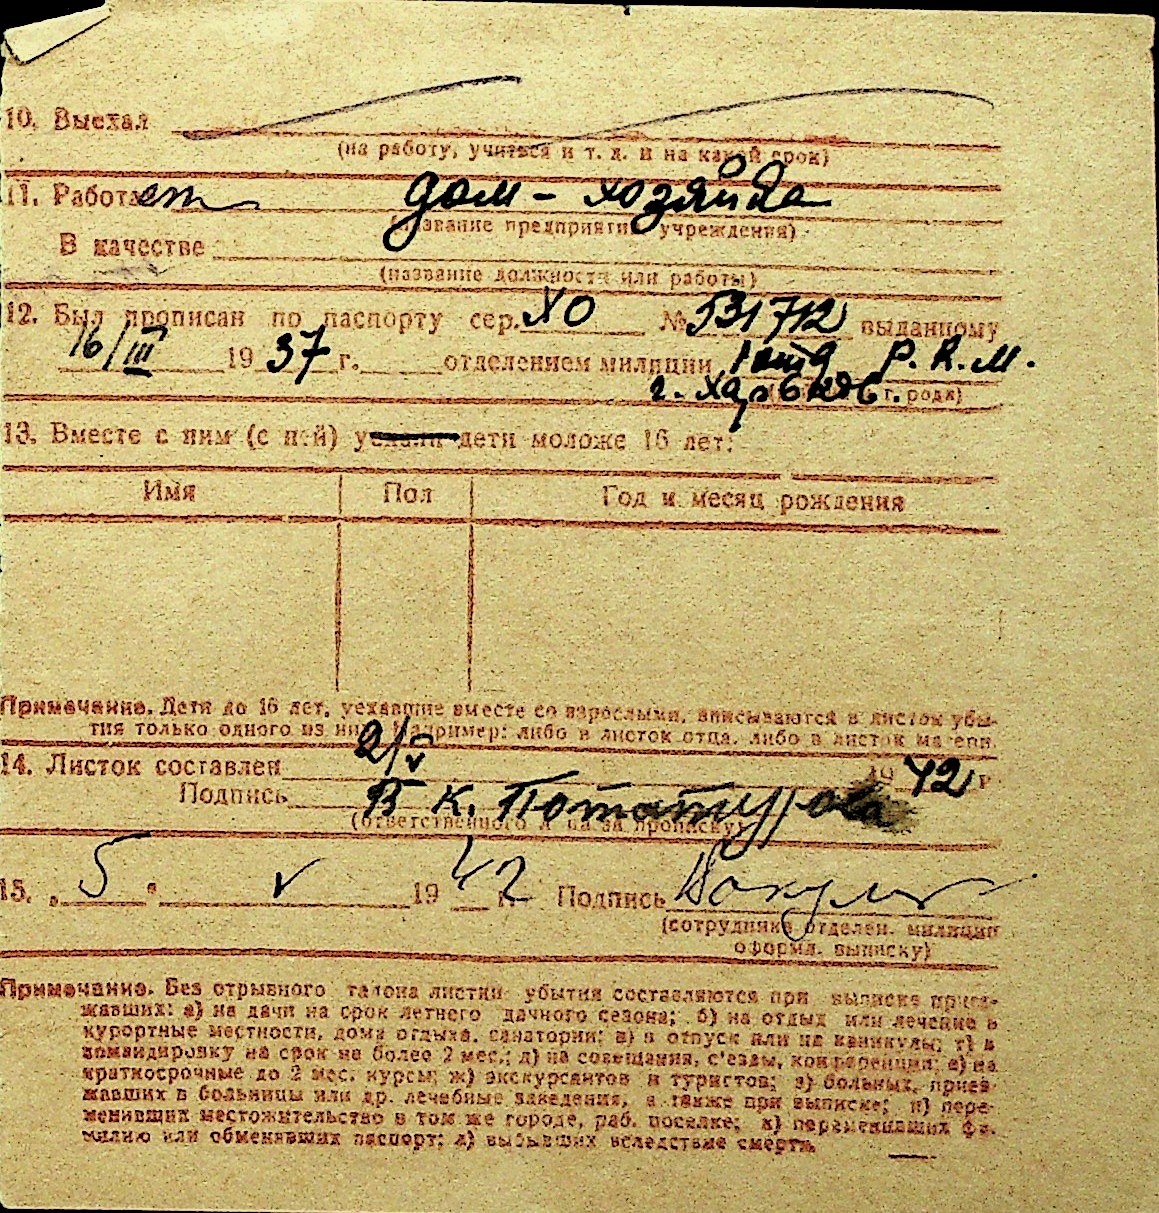 10. Выехал
(на работу, учиться и т. д. и на какой срок)
11. Работает дом-хозяйка
(название предприятия учреждения)
В качестве
(название должности или работы)
12. Был прописан по паспорту сер. ХО № 531712 выданному
16/III 1937 г. отделением милиции 1 отд Р.К.М.
г. Харьков. (города)
13. Вместе с ним (с ней) уехали дети моложе 16 лет:
Имя Пол Год и месяц рождения
Примечание. Дети до 16 лет, уехавшие вместе со взрослыми, вписываются в листок убы-
тия только одного из них. Например: либо в листок отца, либо в листок матери.
14. Листок составлен 2/V 1942 г
Подпись В К.
(ответственного лица за прописку)
15. „5" V 1942 г. Подпись
(сотрудника отделен. милиции
оформ. выписку)
Примечание. Без отрывного талона листки убытия составляются при выписке приез-
жавших: а) на дачи на срок летнего дачного сезона; б) на отдых или лечение в
курортные местности, дома отдыха, санатории; в) в отпуск или на каникулы; г) в
командировку на срок не более 2 мес.; д) на совещания, с'езды, конференции; е) на
краткосрочные до 2 мес. курсы; ж) экскурсантов и туристов; з) больных, приез-
жавших в больницы или др. лечебные заведения, а также при выписке; и) пере-
менивших местожительство в том же городе, раб. поселке; к) переменивших фа-
милию или обменявших паспорт; л) выбывших вследствие смерти.